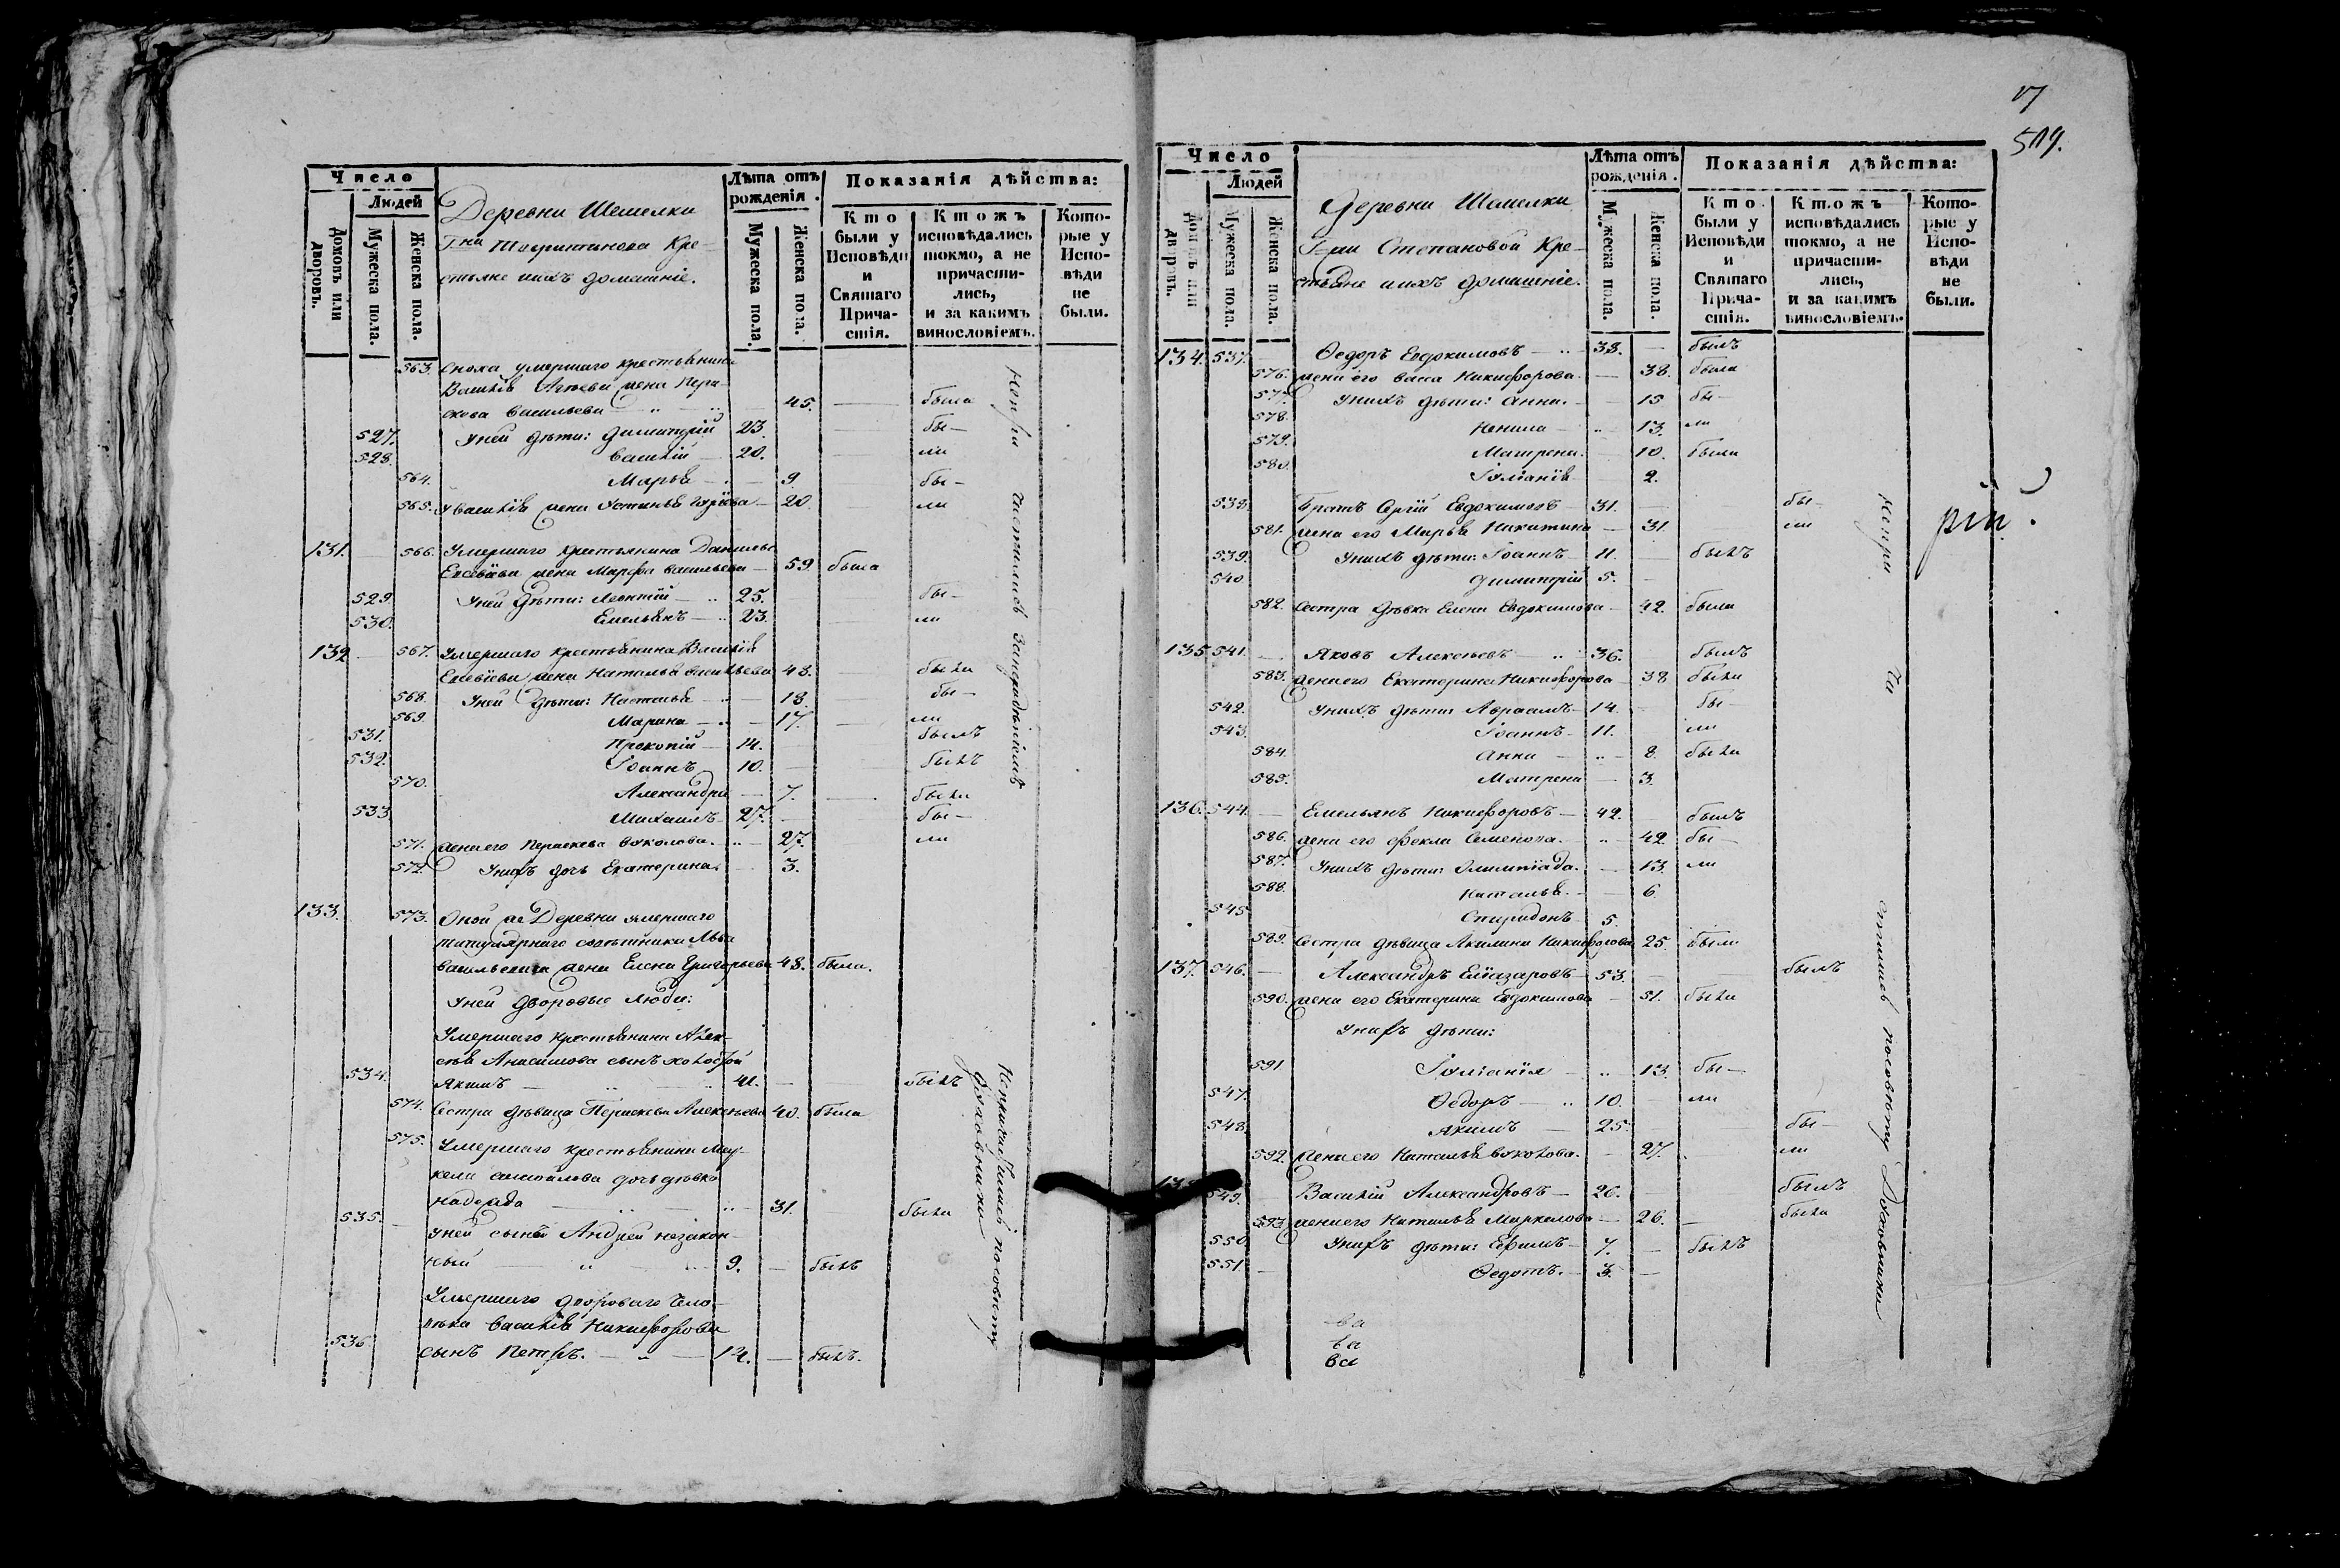 Число
Людей
Домовъ или дворовъ.
Мужеска пола.
Женска пола.
Деревни Шемелки
Кре-
стьяне и ихъ домашніе.
Лѣта отъ рожденія.
Мужеска пола.
Женска пола.
Показанія дѣйства:
Кто были у Исповѣди и Святаго Причастія.
Ктожъ исповѣдались токмо, а не причастились, и за какимъ винословіемъ.
Которые у Исповѣди не были.
563. Сноха умершаго крестьянина
жена Пера-
скова Васильева 45. была
527. У ней дѣти: Димитрій 23. бы-
528. Василій 20. ли
564. Марья 9. бы-
565. У Василія жена Устинья 20. ли
131. 566. Умершаго крестьянина
жена Марфа Васильева 59. была
529. У ней дѣти: Леонтій 25. бы-
530. Емельянъ 23. ли
132. 567. Умершаго крестьянина Василія
жена Наталья Васильева 48. была
568. У ней дѣти: Наталья 18. бы-
569. Марина 17. ли
531. Прокопій 14. былъ
532. Іоаннъ 10. былъ
570. Александра 7. была
533. Михаилъ 27. бы-
571. жена его Параскева Вуколова. 27. ли
572. У нихъ дочь Екатерина 3.
133. 573. Оной же Деревни умершаго
титулярнаго совѣтника Льва
Васильевича жена Елена Григорьева 48. была.
У ней дворовые люди:
Умершаго крестьянина Алек-
сѣя Анисимова сынъ холостой
534. Якимъ 41. былъ
574. Сестра дѣвица Параскева Алексѣева 40. была
575. Умершаго крестьянина Мар-
кела Самойлова дочь дѣвка
Надежда 31. была
535. У ней сынъ Андрей незакон-
ный 9. былъ
Умершаго двороваго чело-
вѣка Василія Никифорова
536. сынъ Петръ. 14. былъ.
Непричастились по совѣту
Духовника
17
519.
Число
Людей
Домовъ или дворовъ.
Мужеска пола.
Женска пола.
Деревни Шемелки
Г-жи Степановой Кре-
стьяне и ихъ домашніе.
Лѣта отъ рожденія.
Мужеска пола.
Женска пола.
Показанія дѣйства:
Кто были у Исповѣди и Святаго Причастія.
Ктожъ исповѣдались токмо, а не причастились, и за какимъ винословіемъ.
Которые у Исповѣди не были.
134. 537. Ѳедоръ Евдокимовъ 38. былъ
576. жена его Васса Никифорова. 38. была
577. У нихъ дѣти: Анна. 15 бы-
578. Ненила 13. ли
579. Матрена. 10. была
580. Іуліанія 2.
538. Братъ Сергій Евдокимовъ 31. бы-
581. жена его Марья Никитина 31. ли
539. У нихъ дѣти: Іоаннъ 11. былъ
540. Димитрій 5.
582. Сестра дѣвка Елена Евдокимова 42. была
135. 541. Яковъ Алексѣевъ 36. былъ
583. жена его Екатерина Никифорова 38 была
542. У нихъ дѣти: Авраамъ 14. бы-
543. Іоаннъ 11. ли
584. Анна 8. была
585. Матрена 3.
136. 544. Емельянъ Никифоровъ 42. былъ
586. жена его Фекла Семенова. 42. бы-
587. У нихъ дѣти: Олимпіада. 13. ли
588. Наталья. 6
545. Спиридонъ 5.
589. Сестра дѣвица Акилина Никифорова 25. была
137. 546. Александръ Елиазаровъ 53. былъ
590. жена его Екатерина Евдокимова 51. была
У нихъ дѣти:
591 Іуліанія 13. бы-
547. Ѳедоръ 10. ли
548. Якимъ 25. бы-
592. жена его Наталья Вуколова. 27. ли
138. 549. Василій Александровъ 26. былъ
593. жена его Наталья Маркелова 26. была
550 У нихъ дѣти: Ефимъ 7. былъ
551. Ѳедотъ. 3.
Непри
ча
стились по совѣту Духовника
рій.
ва
ва
ва